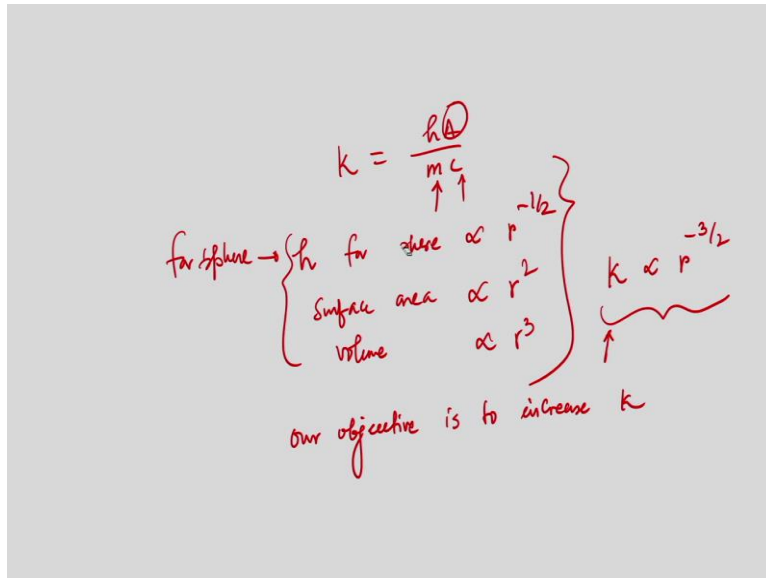 k = hA / mC
for sphere → { h for sphere ∝ r^{-1/2}
surface area ∝ r^2
volume ∝ r^3
} k ∝ r^{-3/2}
our objective is to increase k